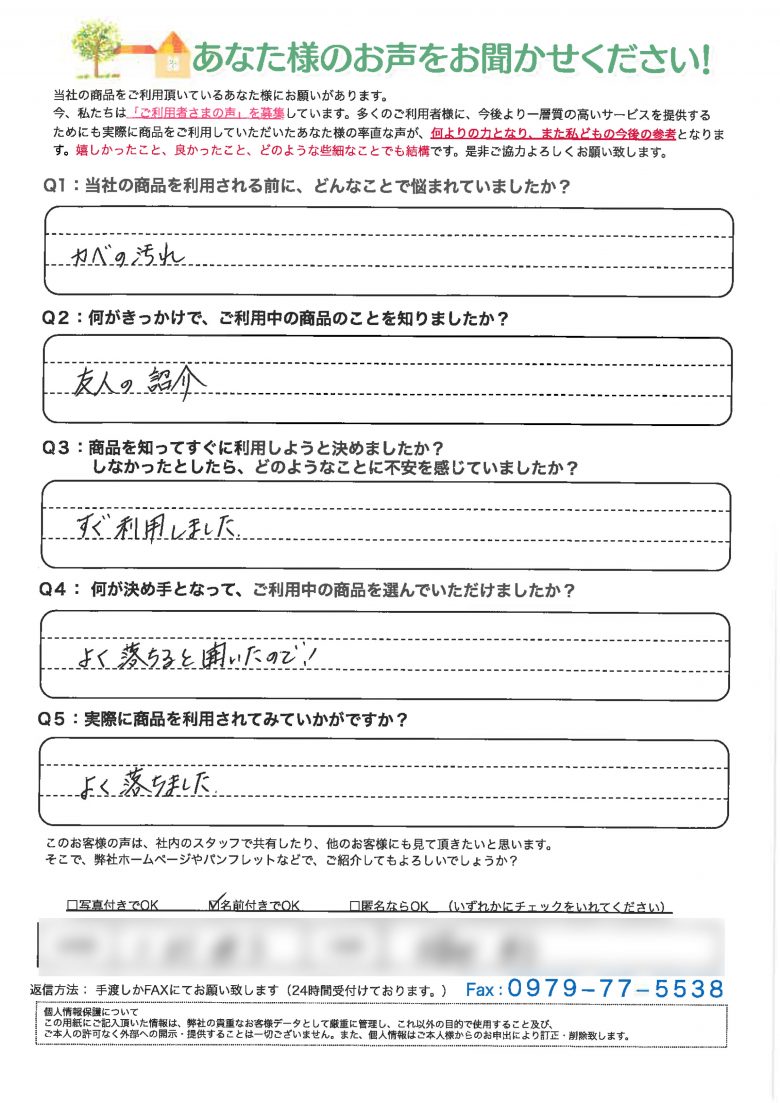 あなた様のお声をお聞かせください!
当社の商品をご利用頂いているあなた様にお願いがあります。
今、私たちは「ご利用者さまの声」を募集しています。多くのご利用者様に、今後より一層質の高いサービスを提供する
ためにも実際に商品をご利用していただいたあなた様の率直な声が、何よりの力となり、また私どもの今後の参考となりま
す。嬉しかったこと、良かったこと、どのような些細なことでも結構です。是非ご協力よろしくお願い致します。
Q1：当社の商品を利用される前に、どんなことで悩まれていましたか？
カベの汚れ
Q2：何がきっかけで、ご利用中の商品のことを知りましたか？
友人の紹介
Q3：商品を知ってすぐに利用しようと決めましたか？
しなかったとしたら、どのようなことに不安を感じていましたか？
すぐ利用しました.
Q4： 何が決め手となって、ご利用中の商品を選んでいただけましたか？
よく落ちると聞いたので!
Q5：実際に商品を利用されてみていかがですか？
よく落ちました.
このお客様の声は、社内のスタッフで共有したり、他のお客様にも見て頂きたいと思います。
そこで、弊社ホームページやパンフレットなどで、ご紹介してもよろしいでしょうか？
□写真付きでOK ☑名前付きでOK □匿名ならOK （いずれかにチェックをいれてください）
返信方法： 手渡しかFAXにてお願い致します（24時間受付けております。） Fax：0979-77-5538
個人情報保護について
この用紙にご記入頂いた情報は、弊社の貴重なお客様データとして厳重に管理し、これ以外の目的で使用すること及び、
ご本人の許可なく外部への開示・提供することは一切ございません。また、個人情報はご本人様からのお申出により訂正・削除致します。